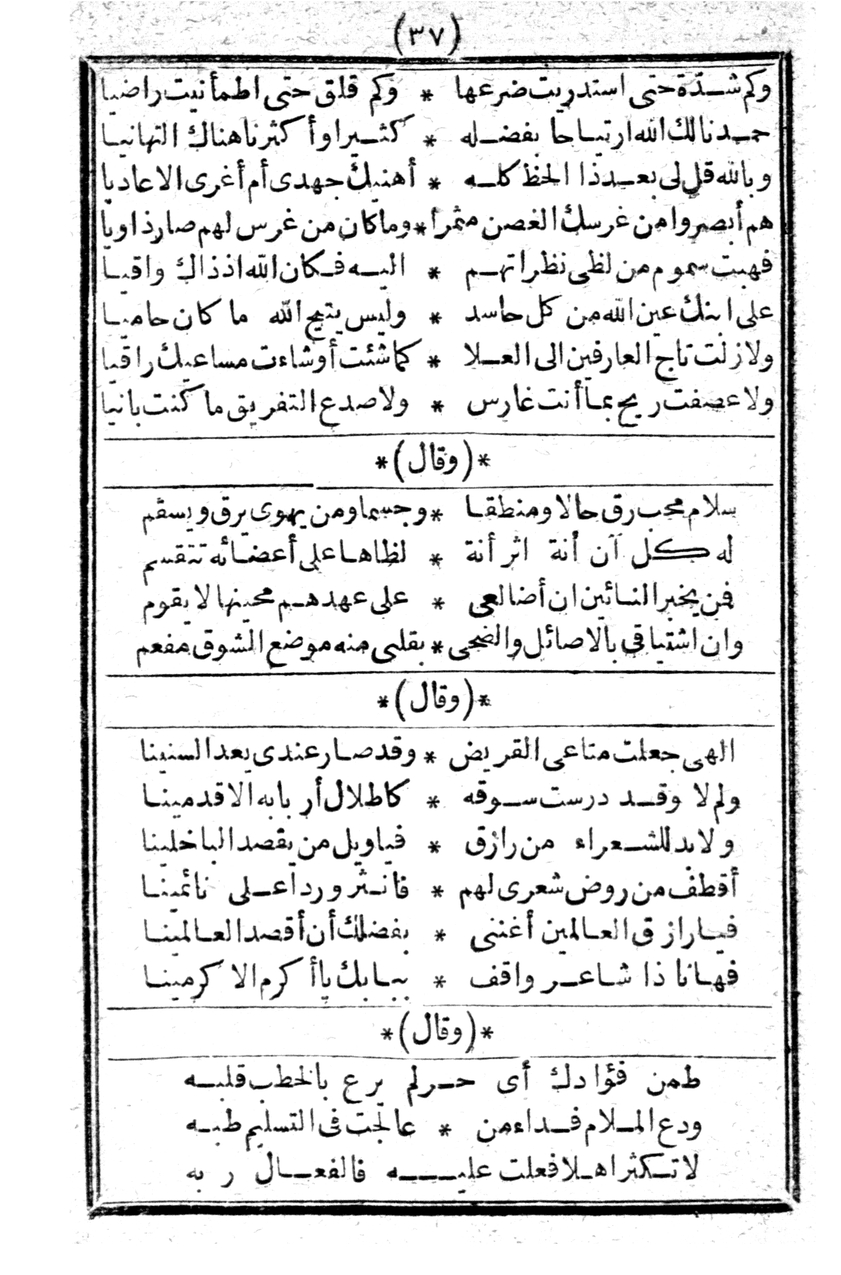 (٣٧)
وكم شدّة حتى استدريت ضرعها * وكم قلق حتى اطمأنيت راضيا
حمدنا لك الله ارتياحا بفضله * كثيرا وأكثرنا هناك التهانيا
وبالله قل لى بعد ذا الحظ كله * أهنيك جهدى أم أغرى الاعاديا
هم أبصروا من غرسك الغصن مثمرا * وما كان من غرس لهم صار ذاويا
فهبت سموم من لظى نظراتهم * اليه فكان الله اذ ذاك واقيا
على ابنك عين الله من كل حاسد * وليس يتيح الله ما كان حاميا
ولا زلت تاج العارفين الى العلا * كما شئت أو شاءت مساعيك راقيا
ولا عصفت ريح بما أنت غارس * ولا صدع التفريق ما كنت بانيا
*(وقال)*
سلام محب رق حالا ومنطقا * وجسما ومن يهوى يرق ويسقم
له كل آن أنة اثر أنة * لظاها على أعضائه تتقسم
فمن يخبر النائين ان أضالعى * على عهدهم محينها لا يقوم
وان اشتياقى بالاصائل والضحى * بقلبى منه موضع الشوق مفعم
*(وقال)*
الهى جعلت متاعى القريض * وقد صار عندى يعد السنينا
ولم لا وقد درست سوقه * كاطلال أربابه الاقدمينا
ولا بد للشعراء من رازق * فيا ويل من يقصد الباخلينا
أقطف من روض شعرى لهم * فانثر وردا على نائمينا
فيا رازق العالمين أغننى * بفضلك أن أقصد العالمينا
فها نا ذا شاعر واقف * ببابك يا أكرم الاكرمينا
*(وقال)*
طمن فؤادك أى حر لم يرع بالخطب قلبه
ودع الملام فداء من * عالجت فى التسليم طبه
لا تكثرا هلا فعلت عليه فالفعال ربه